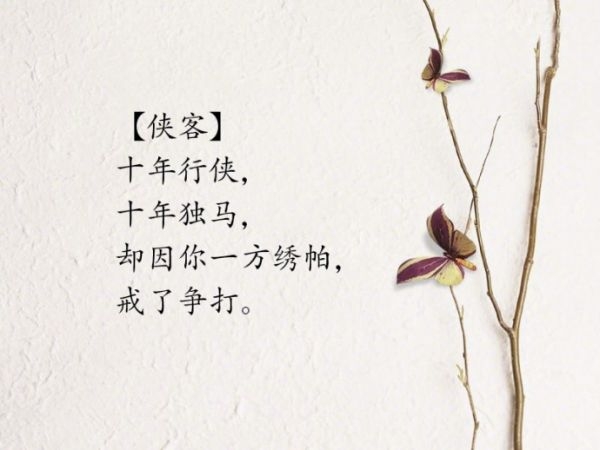 【侠客】
十年行侠，
十年独马，
却因你一方绣帕，
戒了争打。